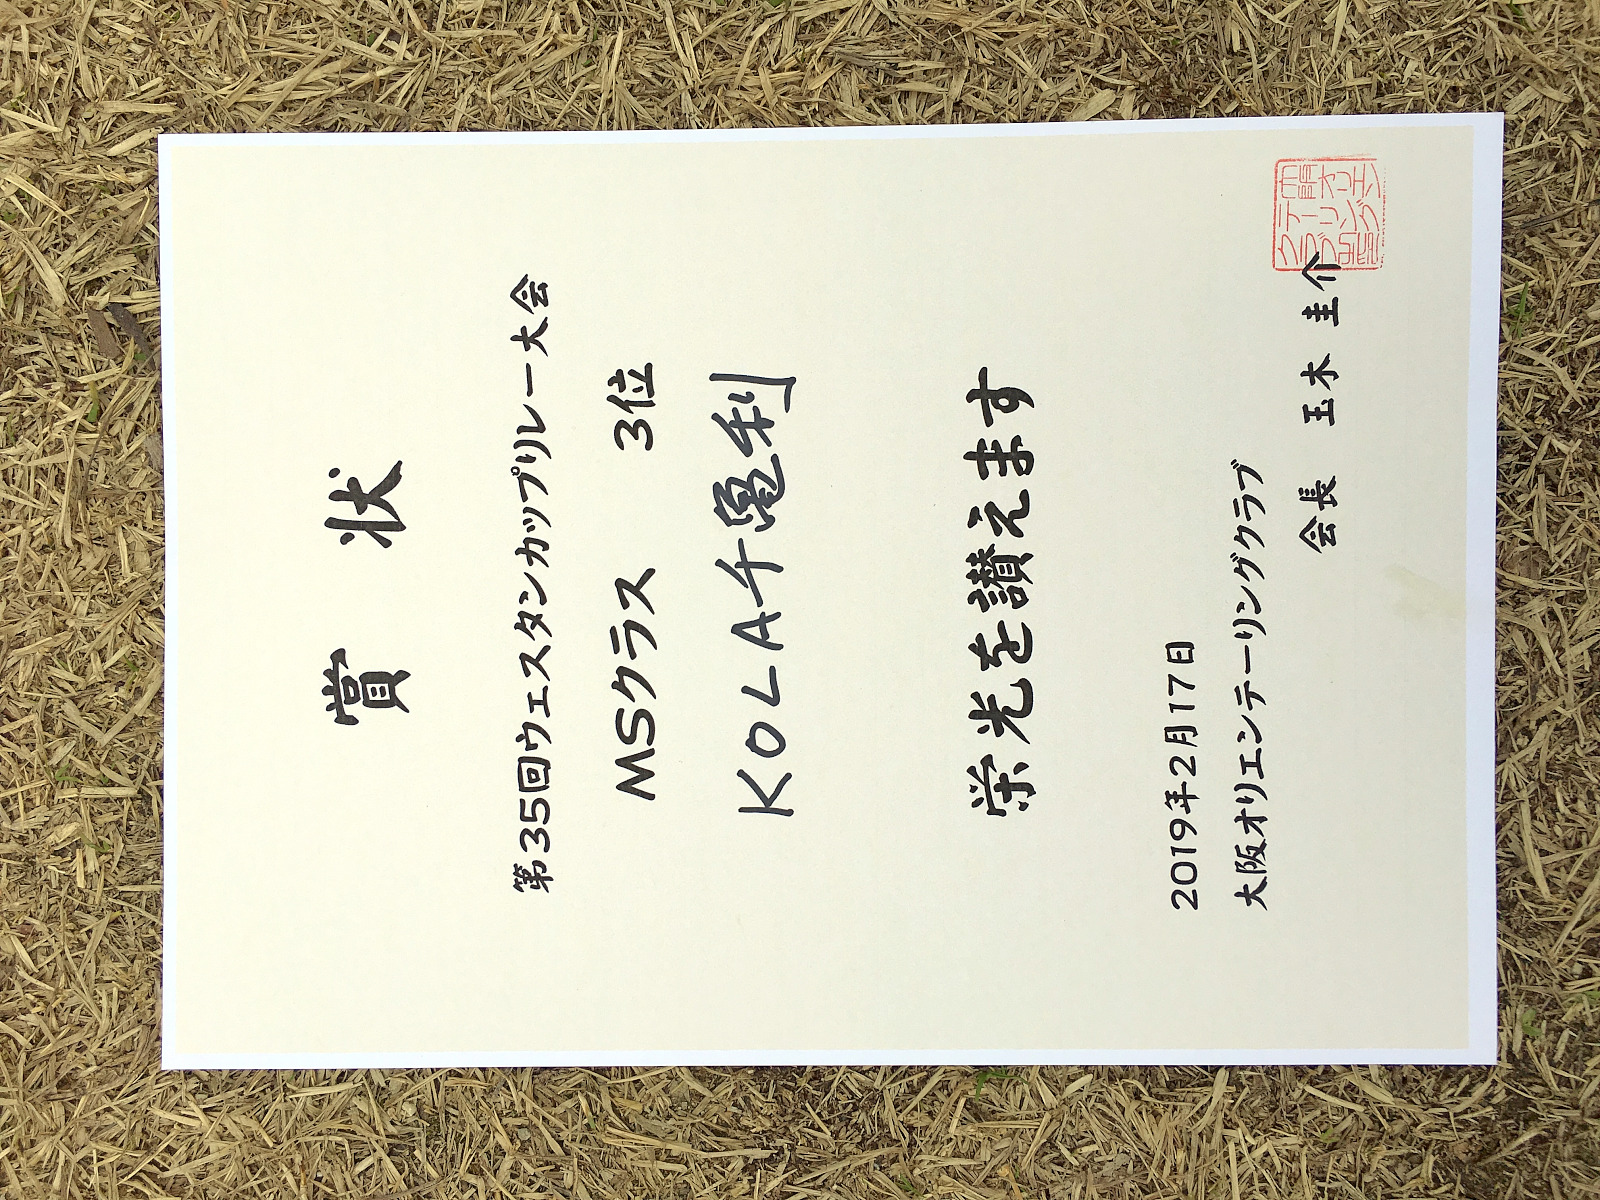 賞 状
第35回ウェスタンカップリレー大会
MSクラス 3位
KOLA千亀利
栄光を讃えます
2019年2月17日
大阪オリエンテーリングクラブ
会長 玉木 圭介